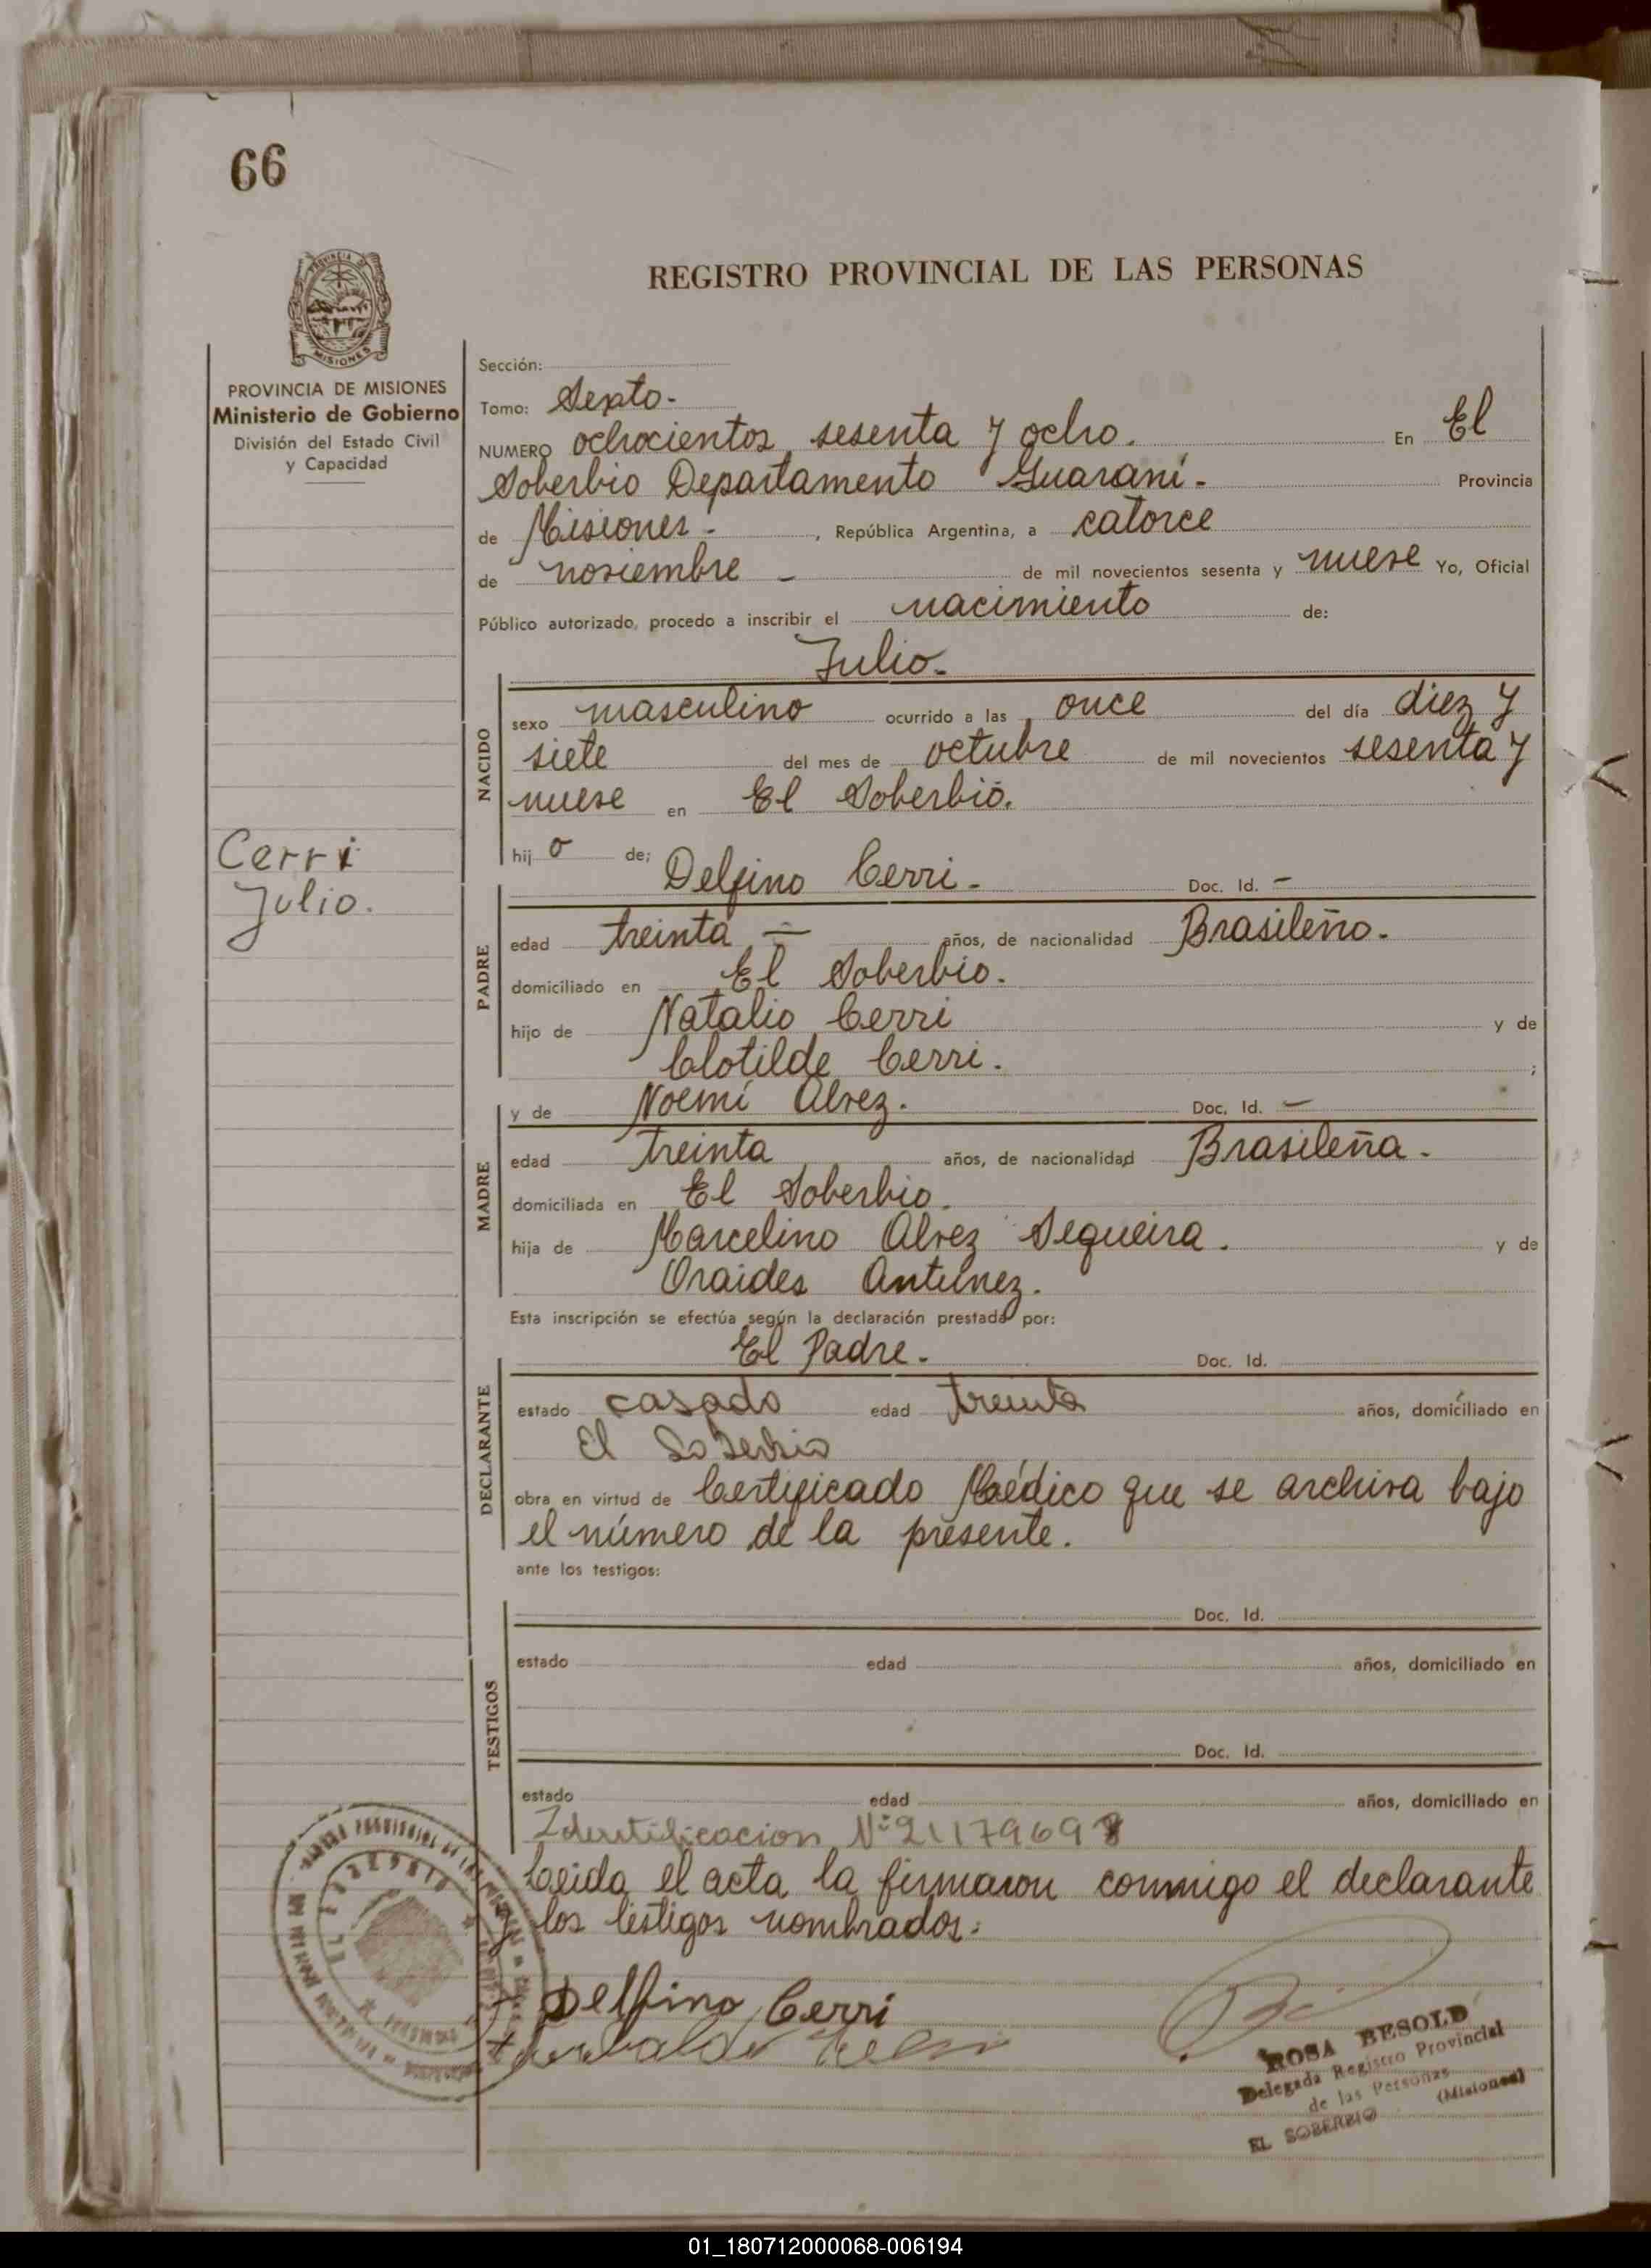 66
REGISTRO PROVINCIAL DE LAS PERSONAS
PROVINCIA DE MISIONES
Ministerio de Gobierno
División del Estado Civil
y Capacidad
Cerri
Julio.
Sección:
Tomo: Sexto-
NUMERO ochocientos sesenta y ocho. En El
Soberbio Departamento Guaraní- Provincia
de Misiones-, República Argentina, a catorce
de noviembre - de mil novecientos sesenta y nueve Yo, Oficial
Público autorizado, procedo a inscribir el nacimiento de:
Julio-
NACIDO
sexo masculino ocurrido a las once del día diez y
siete del mes de octubre de mil novecientos sesenta y
nueve en El Soberbio.
hij o de; Delfino Cerri- Doc. Id. -
PADRE
edad treinta - años, de nacionalidad Brasileño-
domiciliado en El Soberbio.
hijo de Natalio Cerri y de
Clotilde Cerri. ;
y de Noemí Alvez. Doc. Id. -
MADRE
edad treinta años, de nacionalidad Brasileña-
domiciliada en El Soberbio.
hija de Marcelino Alvez Sequeira. y de
Oraides Antunez.
Esta inscripción se efectúa según la declaración prestada por:
El Padre- Doc. Id.
DECLARANTE
estado casado edad treinta años, domiciliado en
El Soberbio
obra en virtud de Certificado Médico que se archiva bajo
el número de la presente.
ante los testigos:
TESTIGOS
Doc. Id.
estado edad años, domiciliado en
Doc. Id.
estado edad años, domiciliado en
Identificacion Nº 21179698
Leida el acta la firmaron conmigo el declarante
y los testigos nombrados:
Delfino Cerri
ROSA BESOLD
Delegada Registro Provincial
de las Personas
EL SOBERBIO (Misiones)
01_180712000068-006194